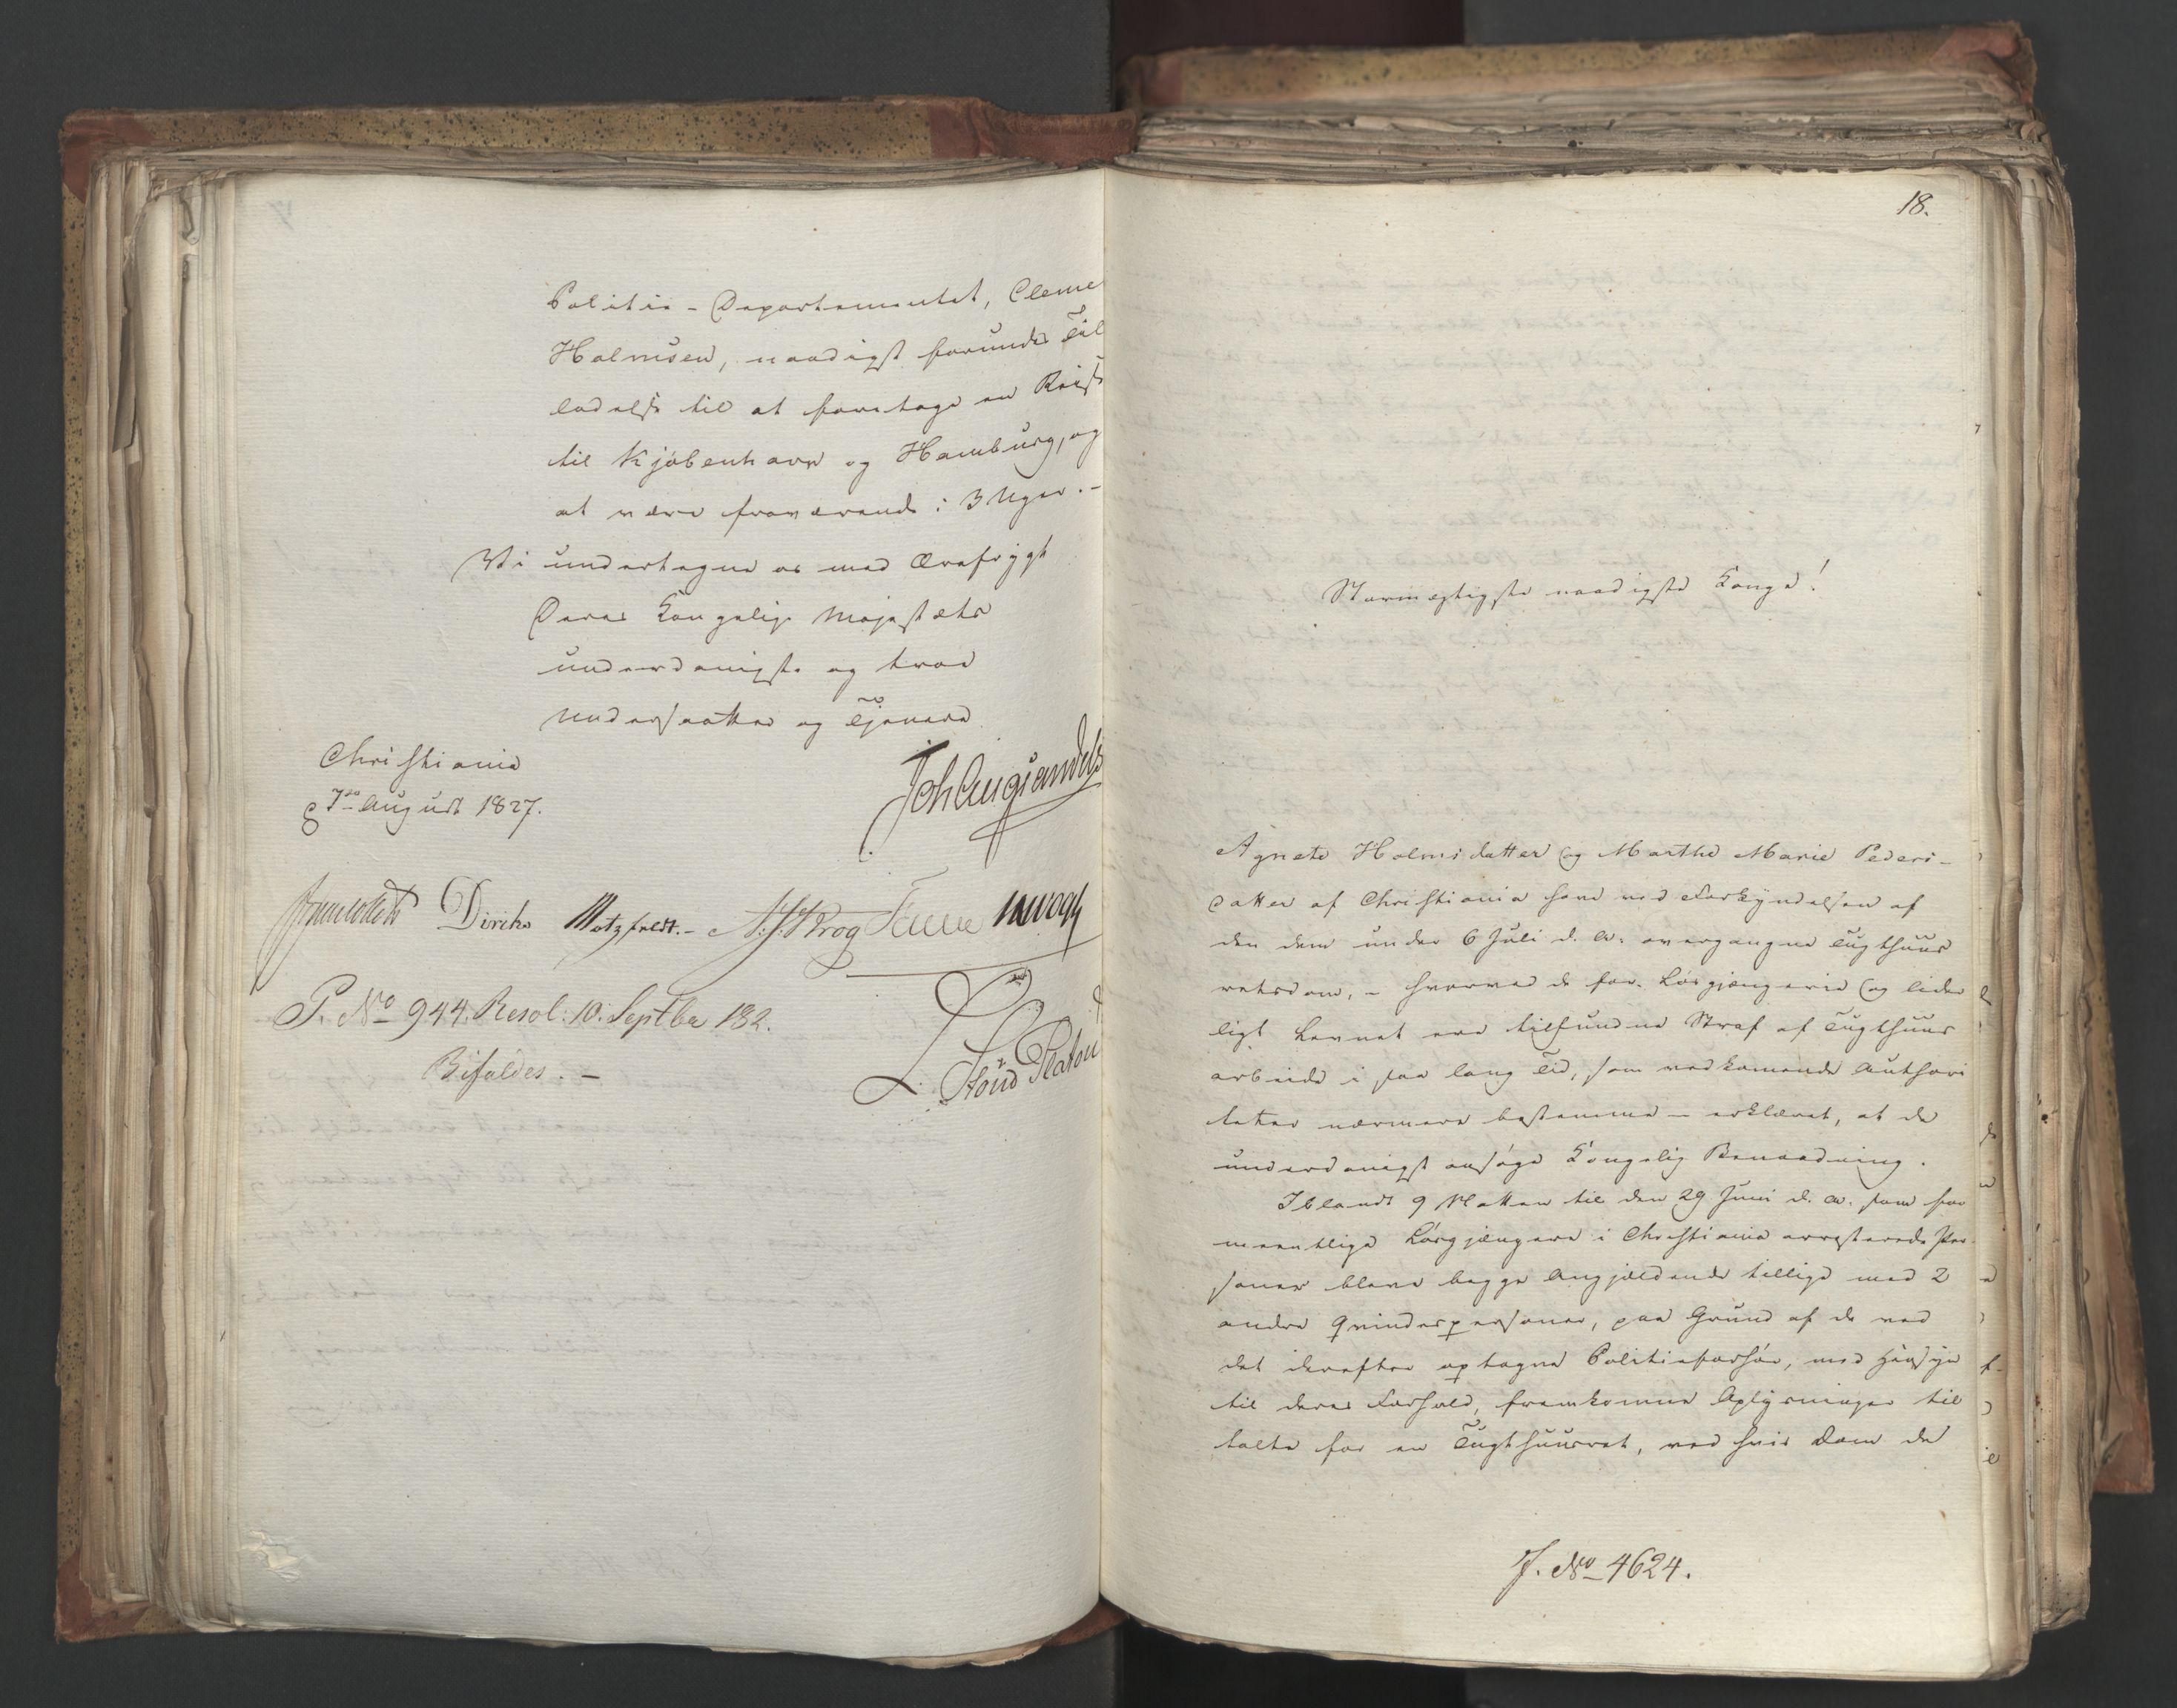 Politie-Departementet, Cleme
Holmsen, naadigst forundes Til
ladelse til at foretage en Reise
til Kjøbenhavn og Hamburg, og
at være fraværende i 3 Uger. -
Vi undertegne os med Ærefrygt
Deres Kongelige Majestæts
underdanigste og troe
Undersaatter og Tjenere
Christiania
d 7de August 1827.
Joh Aug Sandels
Diriks Motzfeldt. - Krog Fasting
P. No 944. Resol: 10. Septbr 182.
Bifaldes. -
L. Stoud Platou
18.
Stormægtigste naadigste Konge!
Agnete Holmsdatter og Marthe Marie Peders-
datter af Christiania have ved Forkyndelsen af
den dem under 6 Juli d. A. overgangne Tugthuus
retsdom, - hvorved de for Løsgjængerie og lider
ligt Levnet ere tilfundne Straf af Tugthuus
arbeide i saa lang Tid, som vedkomende Authori
teter nærmere bestemme - erklæret, at de
underdanigst ansøge Kongelig Benaadning.
Iblandt 9 Natten til den 29 Juni d. A. som for
meentlige Løsgjængere i Christiania arresterede Per
soner bleve begge Angjældende tillige med 2
andre Qvindespersoner, paa Grund af de ved
det derefter optagne Politieforhør, med Hensyn
til deres Forhold, fremkomne Oplysninger til
talte for en Tugthuusret, ved hvis Dom de
J. No 4624.